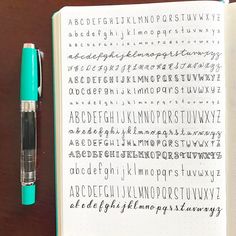 ABCDEFGHIJKLMNOPQRSTUVWXYZ
abcdefghijklmnopqrstuvwxyz
ABCDEFGHIJKLMNOPQRSTUVWXYZ
abcdefghijklmnopqrstuvwxyz
abcdefghijklmnopqrstuvwxyz
ABCDEFGHIJKLMNOPQRSTUVWXYZ
abcdefghijklmnopqrstuvwxyz
ABCDEFGHIJKLMNOPQRSTUVWXYZ
abcdefghijklmnopqrstuvwxyz
ABCDEFGHIJKLMNOPQRSTUVWXYZ
abcdefghijklmnopqrstuvwxyz
ABCDEFGHIJKLMNOPQRSTUVWXYZ
abcdefghijklmnopqrstuvwxyz